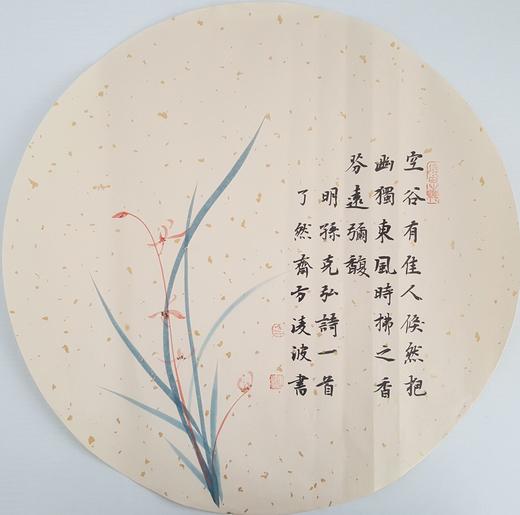 空谷有佳人倏然抱
幽獨東風時拂之香
芬遠彌馥
明孫克弘詩一首
了然齋方淩波書